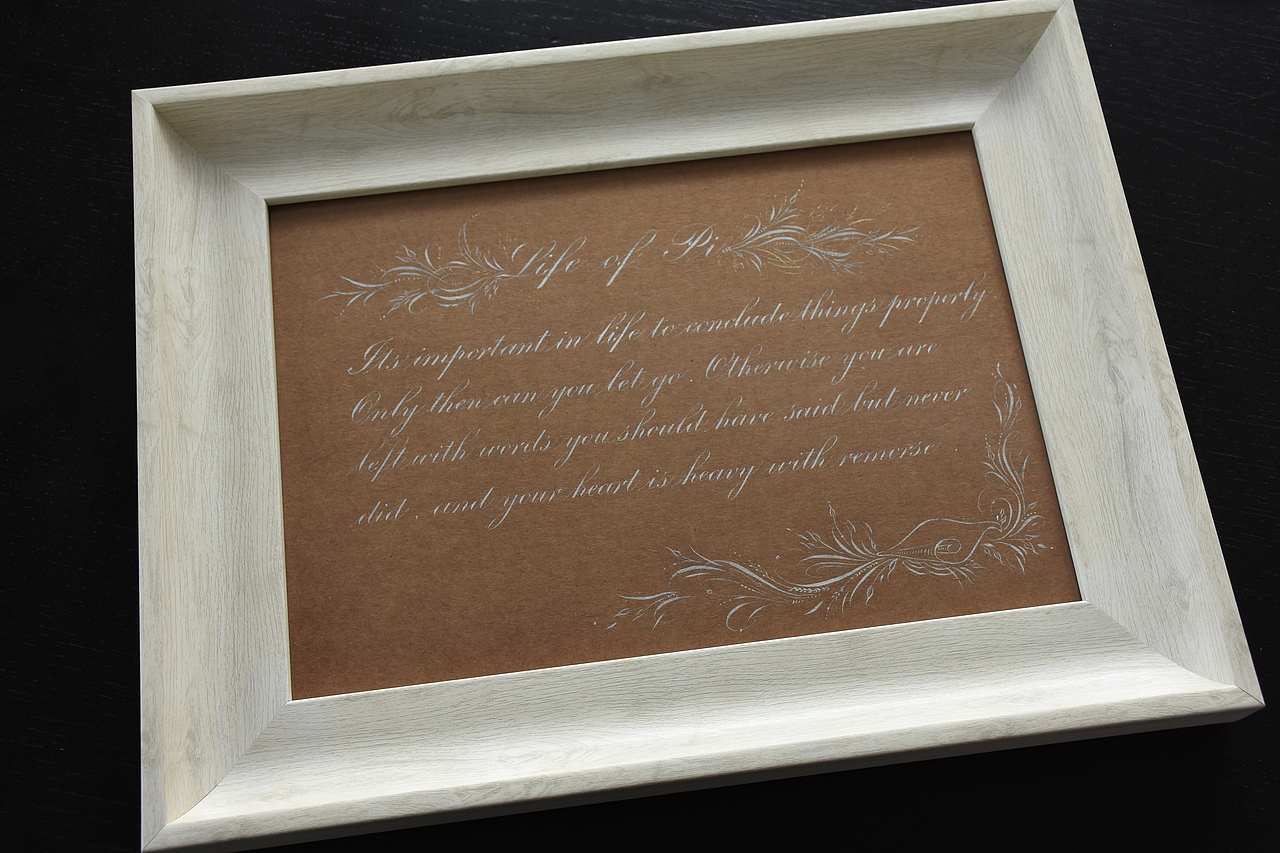 Life of Pi
Its important in life to conclude things properly.
Only then can you let go. Otherwise you are
left with words you should have said but never
did, and your heart is heavy with remorse.